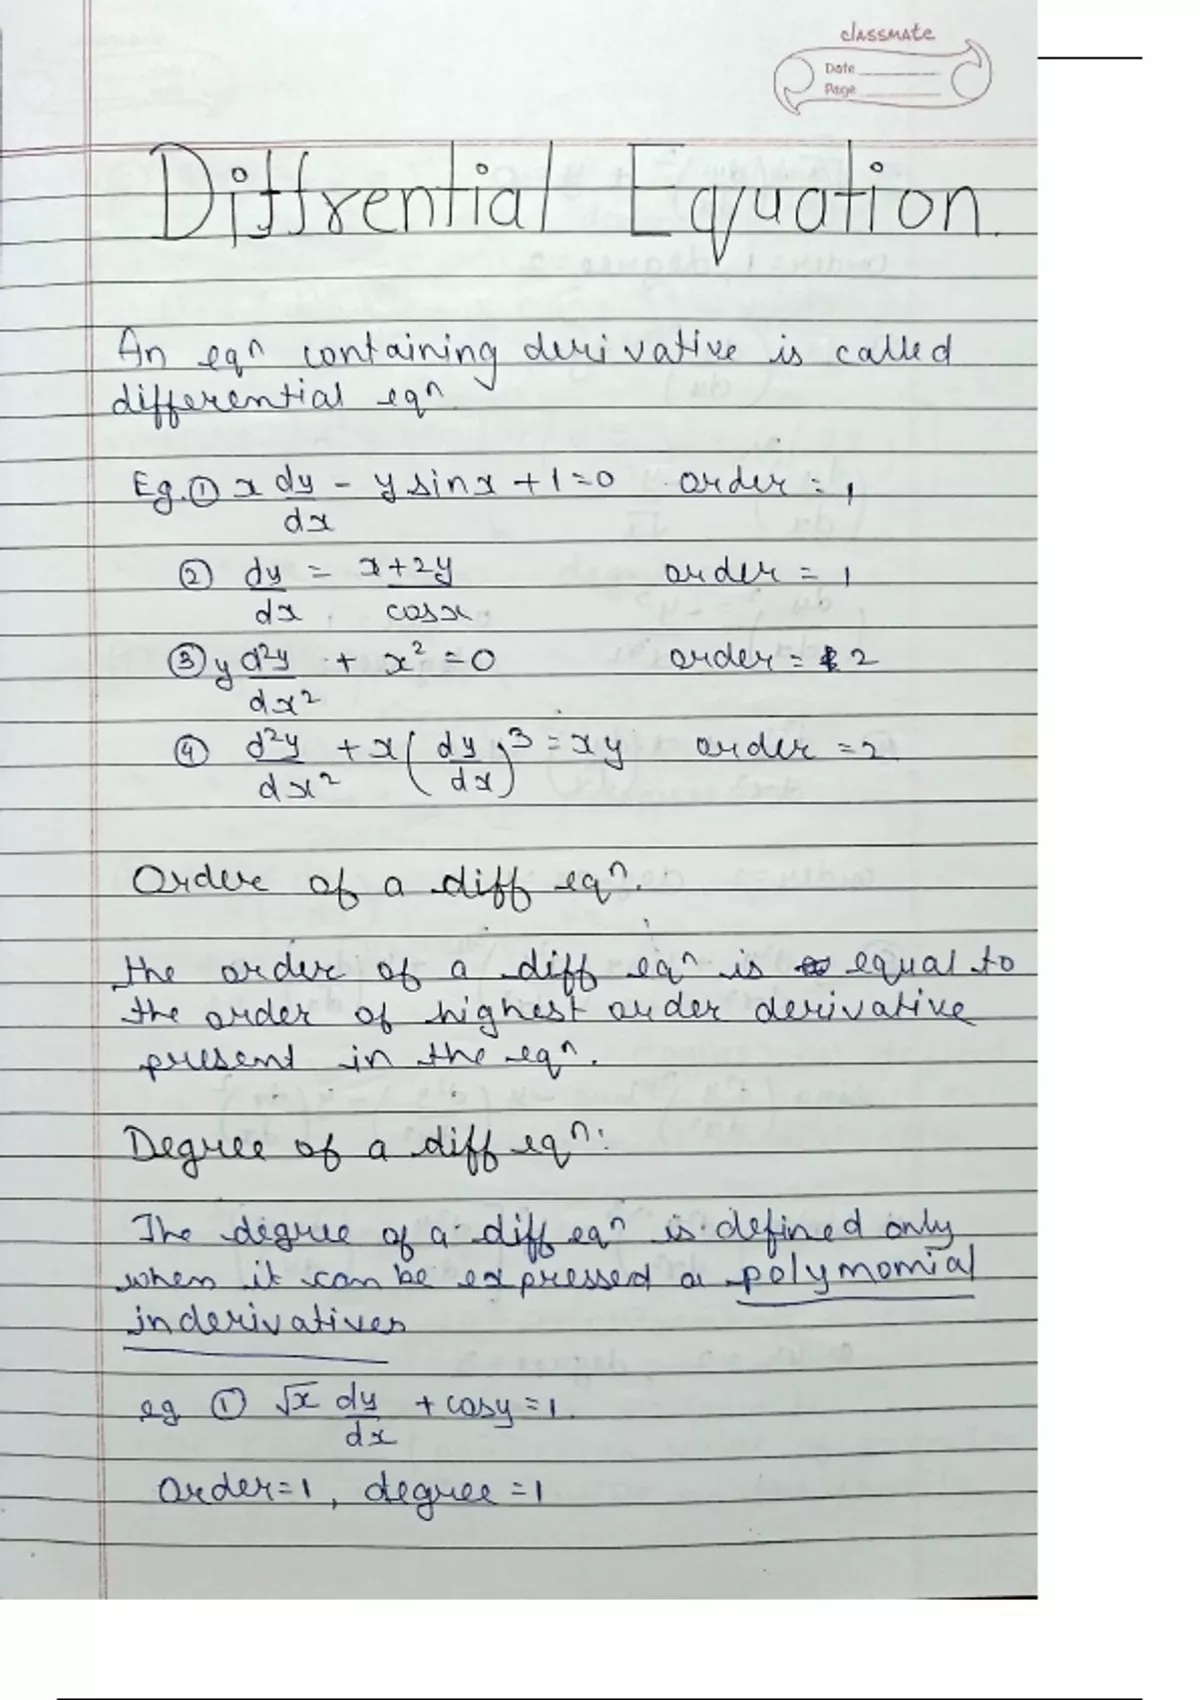 classmate
Date
Page
Diffrential Equation.
An eqⁿ containing derivative is called
differential eqⁿ.
Eg. ① x dy/dx - y sinx + 1 = 0 order = 1
② dy/dx = x+2y/cosx order = 1
③ y d²y/dx² + x² = 0 order = 2
④ d²y/dx² + x(dy/dx)³ = xy order = 2
Order of a diff eqⁿ.
The order of a diff eqⁿ is equal to
the order of highest order derivative
present in the eqⁿ.
Degree of a diff eqⁿ:
The degree of a diff eqⁿ is defined only
when it can be expressed a polymomial
in derivatives
eg ① √x dy/dx + cosy = 1.
Order = 1, degree = 1